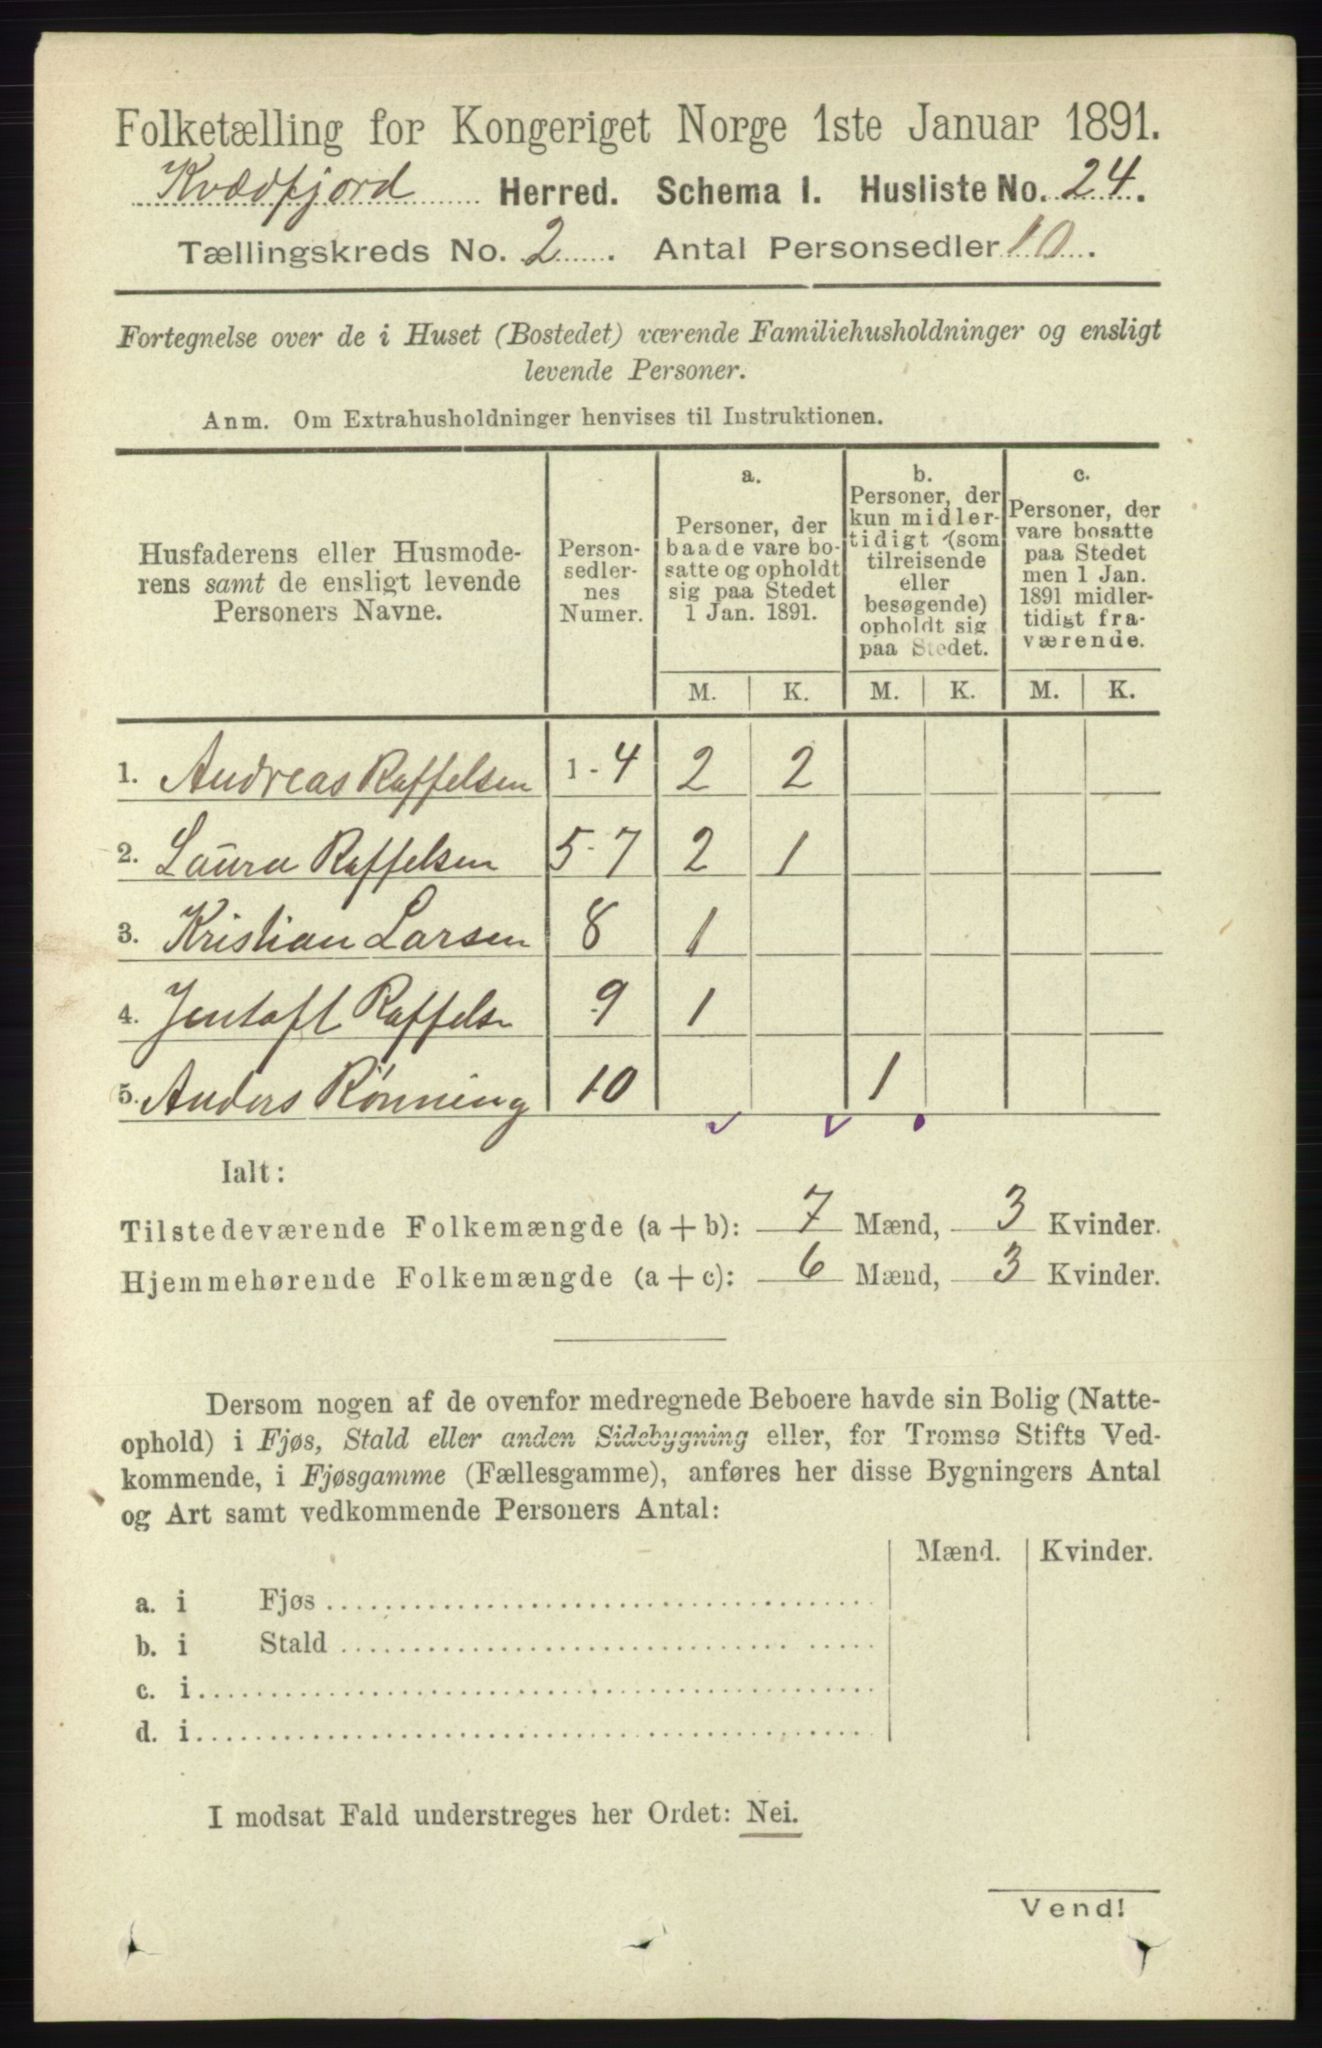 Folketælling for Kongeriget Norge 1ste Januar 1891.
Kvædfjord Herred. Schema I. Husliste No. 24.
Tællingskreds No. 2. Antal Personsedler 10.
Fortegnelse over de i Huset (Bostedet) værende Familiehusholdninger og ensligt
levende Personer.
Anm. Om Extrahusholdninger henvises til Instruktionen.
Husfaderens eller Husmode-
rens samt de ensligt levende
Personers Navne.
Person-
sedler-
nes
Numer.
a.
Personer, der
baade vare bo-
satte og opholdt
sig paa Stedet
1 Jan. 1891.
b.
Personer, der
kun midler-
tidigt (som
tilreisende
eller
besøgende)
opholdt sig
paa Stedet.
c.
Personer, der
vare bosatte
paa Stedet
men 1 Jan.
1891 midler-
tidigt fra-
værende.
M. K. M. K. M. K.
1. Andreas Raffelsen 1-4 2 2
2. Laura Raffelsen 5-7 2 1
3. Kristian Larsen 8 1
4. Jentoft Raffelsn 9 1
5. Anders Rønning 10 1
Ialt:
Tilstedeværende Folkemængde (a + b): 7 Mænd, 3 Kvinder.
Hjemmehørende Folkemængde (a + c): 6 Mænd, 3 Kvinder.
Dersom nogen af de ovenfor medregnede Beboere havde sin Bolig (Natte-
ophold) i Fjøs, Stald eller anden Sidebygning eller, for Tromsø Stifts Ved-
kommende, i Fjøsgamme (Fællesgamme), anføres her disse Bygningers Antal
og Art samt vedkommende Personers Antal:
Mænd. Kvinder.
a. i Fjøs
b. i Stald
c. i
d. i
I modsat Fald understreges her Ordet: Nei.
Vend!